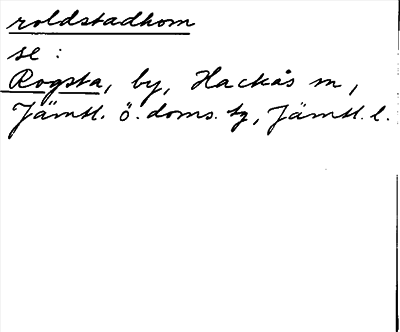 roldstadhom
se:
Rogsta, by, Hackås sn,
Jämtl. ö. doms. tg, Jämtl. l.